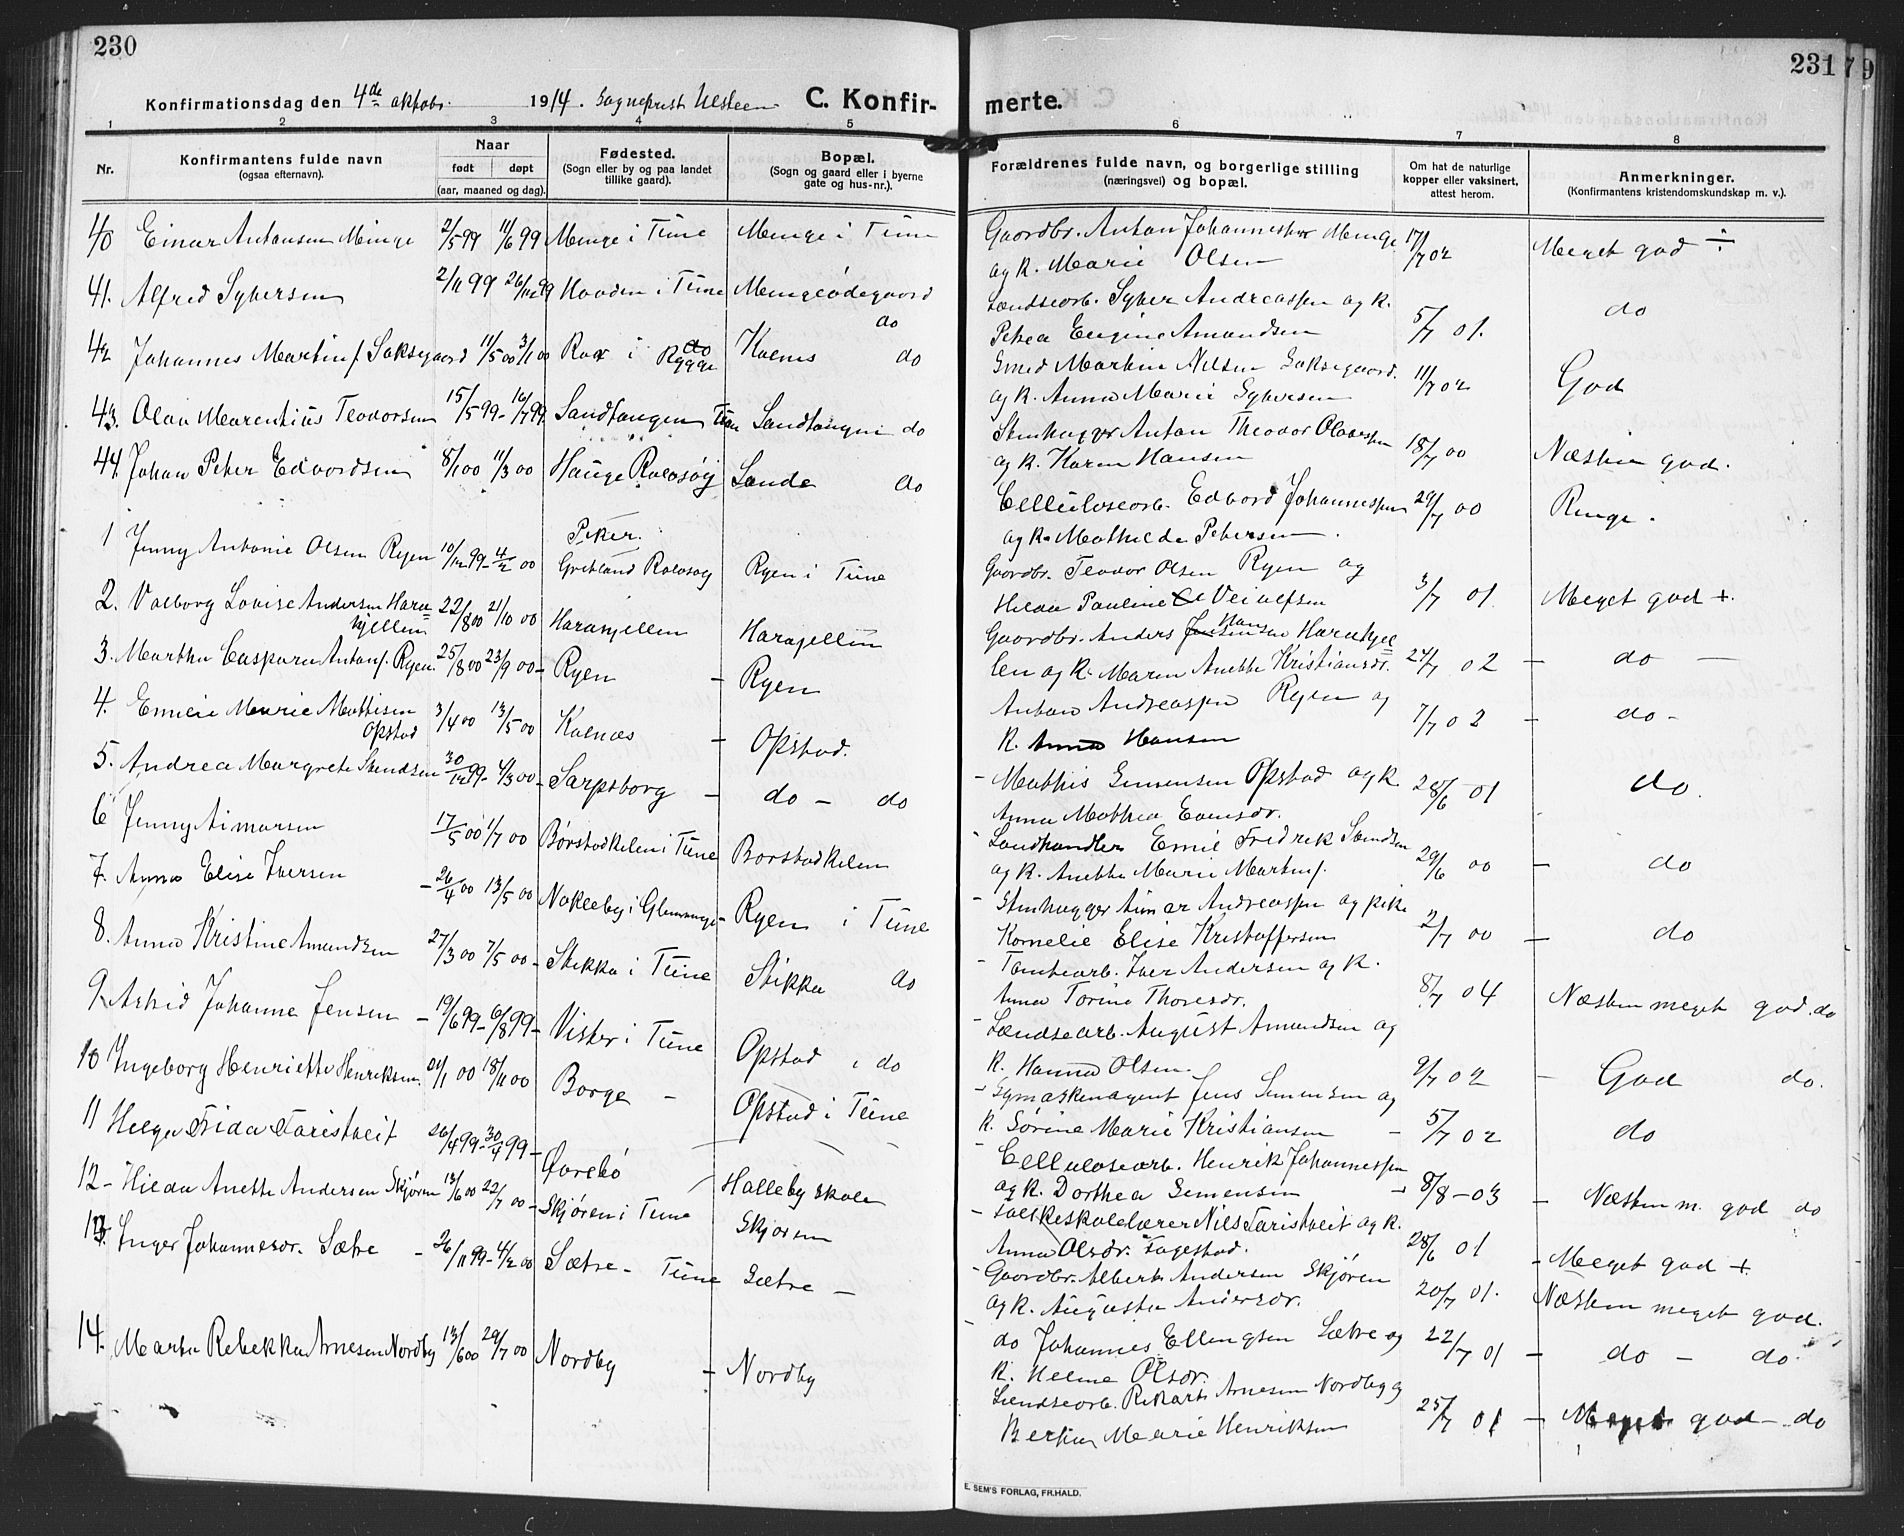 230
Konfirmationsdag den 4de oktobr. 1914. Sogneprest C. Konfir-
1 2 3 4 5
Nr. Konfirmantens fulde navn (ogsaa efternavn). Naar født døpt (aar, maaned og dag). Fødested. (Sogn eller by og paa landet tillike gaard). Bopæl. (Sogn og gaard eller i byerne gate og hus-nr.).
40 Einar Antonsen Minge 2/5 99 11/6 99 Minge i Tune Minge i Tune
41. Alfred Syversen 2/11 99 26/12 99 i Tune Mingeødegaard do
42 Johannes Martinf. Saksegaard 11/5 00 3/1 00 i Rygge Kolnes do
43. Olav Marentius Teodorsen 15/5 99 - 16/7 99 Sandtangen Tune Sandtangen do
44. Johan Peter Edvardsen 8/1 00 11/3 00 Hauge Rolvsøy Sande do
1 Jenny Antonie Olsen Ryen 10/12 99 - 4/2 00 Piker. Gretland Rolvsøy Ryen i Tune
2. Valborg Lovise Andersen Hara=
kjellen 22/8 00 21/10 00 Harakjellen Harakjellen
3. Martha Caspara Antonf. Ryen 25/8 00 23/9 00 - Ryen - Ryen
4. Emilie Marie Mattisen
Opstad 3/4 00 13/5 00 Kolnæs - Opstad.
5. Andrea Margrete Sandsen 30/12 99 - 4/3 00 - Sarpsborg - do - do
6 Jenny Aimarsen 17/5 00 1/7 00 Børstadkilen i Tune Borstadkilen
7. Anna Elise Iversen - 26/4 00 13/5 00 Nokleby i Glemminge - Ryen i Tune
8. Anna Kristine Amundsen 27/3 00 7/5 00 - Stikka i Tune Stikka do
9. Astrid Johanne Jensen - 19/6 99 - 6/8 99 - Vister i Tune Opstad i do
10 Ingeborg Henriette Henriksen 21/1 00 18/11 00 Borge - Opstad i Tune
11 Helga Frida Taristveit 26/4 99 - 30/4 99 - Øvrebø Halleby skole
12 - Hilda Anette Andersen Skjøren 13/6 00 22/7 00 - Skjøren i Tune Skjøren
13. Inger Johannesdr. Sætre - 26/11 99 - 4/2 00 Sætre - Tune Sætre -
14. Marta Rebekka Arnesen Nordby 13/6 00 29/7 00 Nordby - Nordby
231
merte.
6 7 8
Forældrenes fulde navn, og borgerlige stilling (næringsvei) og bopæl. Om hat de naturlige kopper eller vaksinert, attest herom. Anmerkninger. (Konfirmantens kristendomskundskap m. v.).
Gaardbr. Anton Johannesen Minge
og k. Marie Olsen 17/7 02 Meget god ÷
Landseorb. Syver Andreassen og k.
Petra Eugine Amundsen 5/7 01. do
Smed Martin Nilsen Saksegaard.
og k. Anna Marie Syversen 11/7 02 God
Stenhugger Anton Theodor Olavessen
og k. Karen Hansen 18/7 00 Næsten god.
Celluloseorb. Edvard Johannessen
og k. Mathilde Petersen. 29/7 00 Ringe.
Gaardbr. Teodor Olsen Ryen og
Hilda Pauline Veialfsen 3/7 01 Meget god +.
Gaardbr. Anders Hansen Harakjel=
len og k. Maren Anette Kristiansdr. 24/7 02 - do -
Anton Andreassen Ryen og
k. Anna Hansen 7/7 02 - do -
- Mathis Simensen Opstad og k
Anna Mathea Evensdr. 28/6 01 do.
- Landhandler Emil Fredrik Sandsen
og k. Anette Marie Martinf. 29/6 00 - do
- Stenhugger Aimar Andreassen og pike
Kornelie Elise Kristoffersen 2/7 00 - do
- Tomtearb. Iver Andersen og k.
Anna Torine Thoresdr. 8/7 04 Næsten meget god. do
- Landsearb. August Amundsen og
k. Hanna Olsen. 9/7 02 - God do.
- Symaskenagent Jens Simensen og
k. Sørine Marie Kristiansen - 5/7 02 do
- Cellulosearb. Henrik Johannessen
og k. Dorthea Simensen - 8/8 - 03 - Næsten m. god do
- Folkeskolelærer Nils Taristveit og k.
Anna Olsdr. Fagestad. 28/6 01 - Meget god +
- Gaardbr. Albert Andersen Skjøren
og k. Augusta Andersdr. 20/7 01. Næsten meget god.
- do Johannes Ellingsen Sætre og
k. Helene Olsdr. 22/7 01 - do - do.
Landseorb. Rikart Arnesen Nordby og
Berthe Marie Henriksen 25/7 01 - Meget god - do
E. SEM'S FORLAG, FR.HALD.